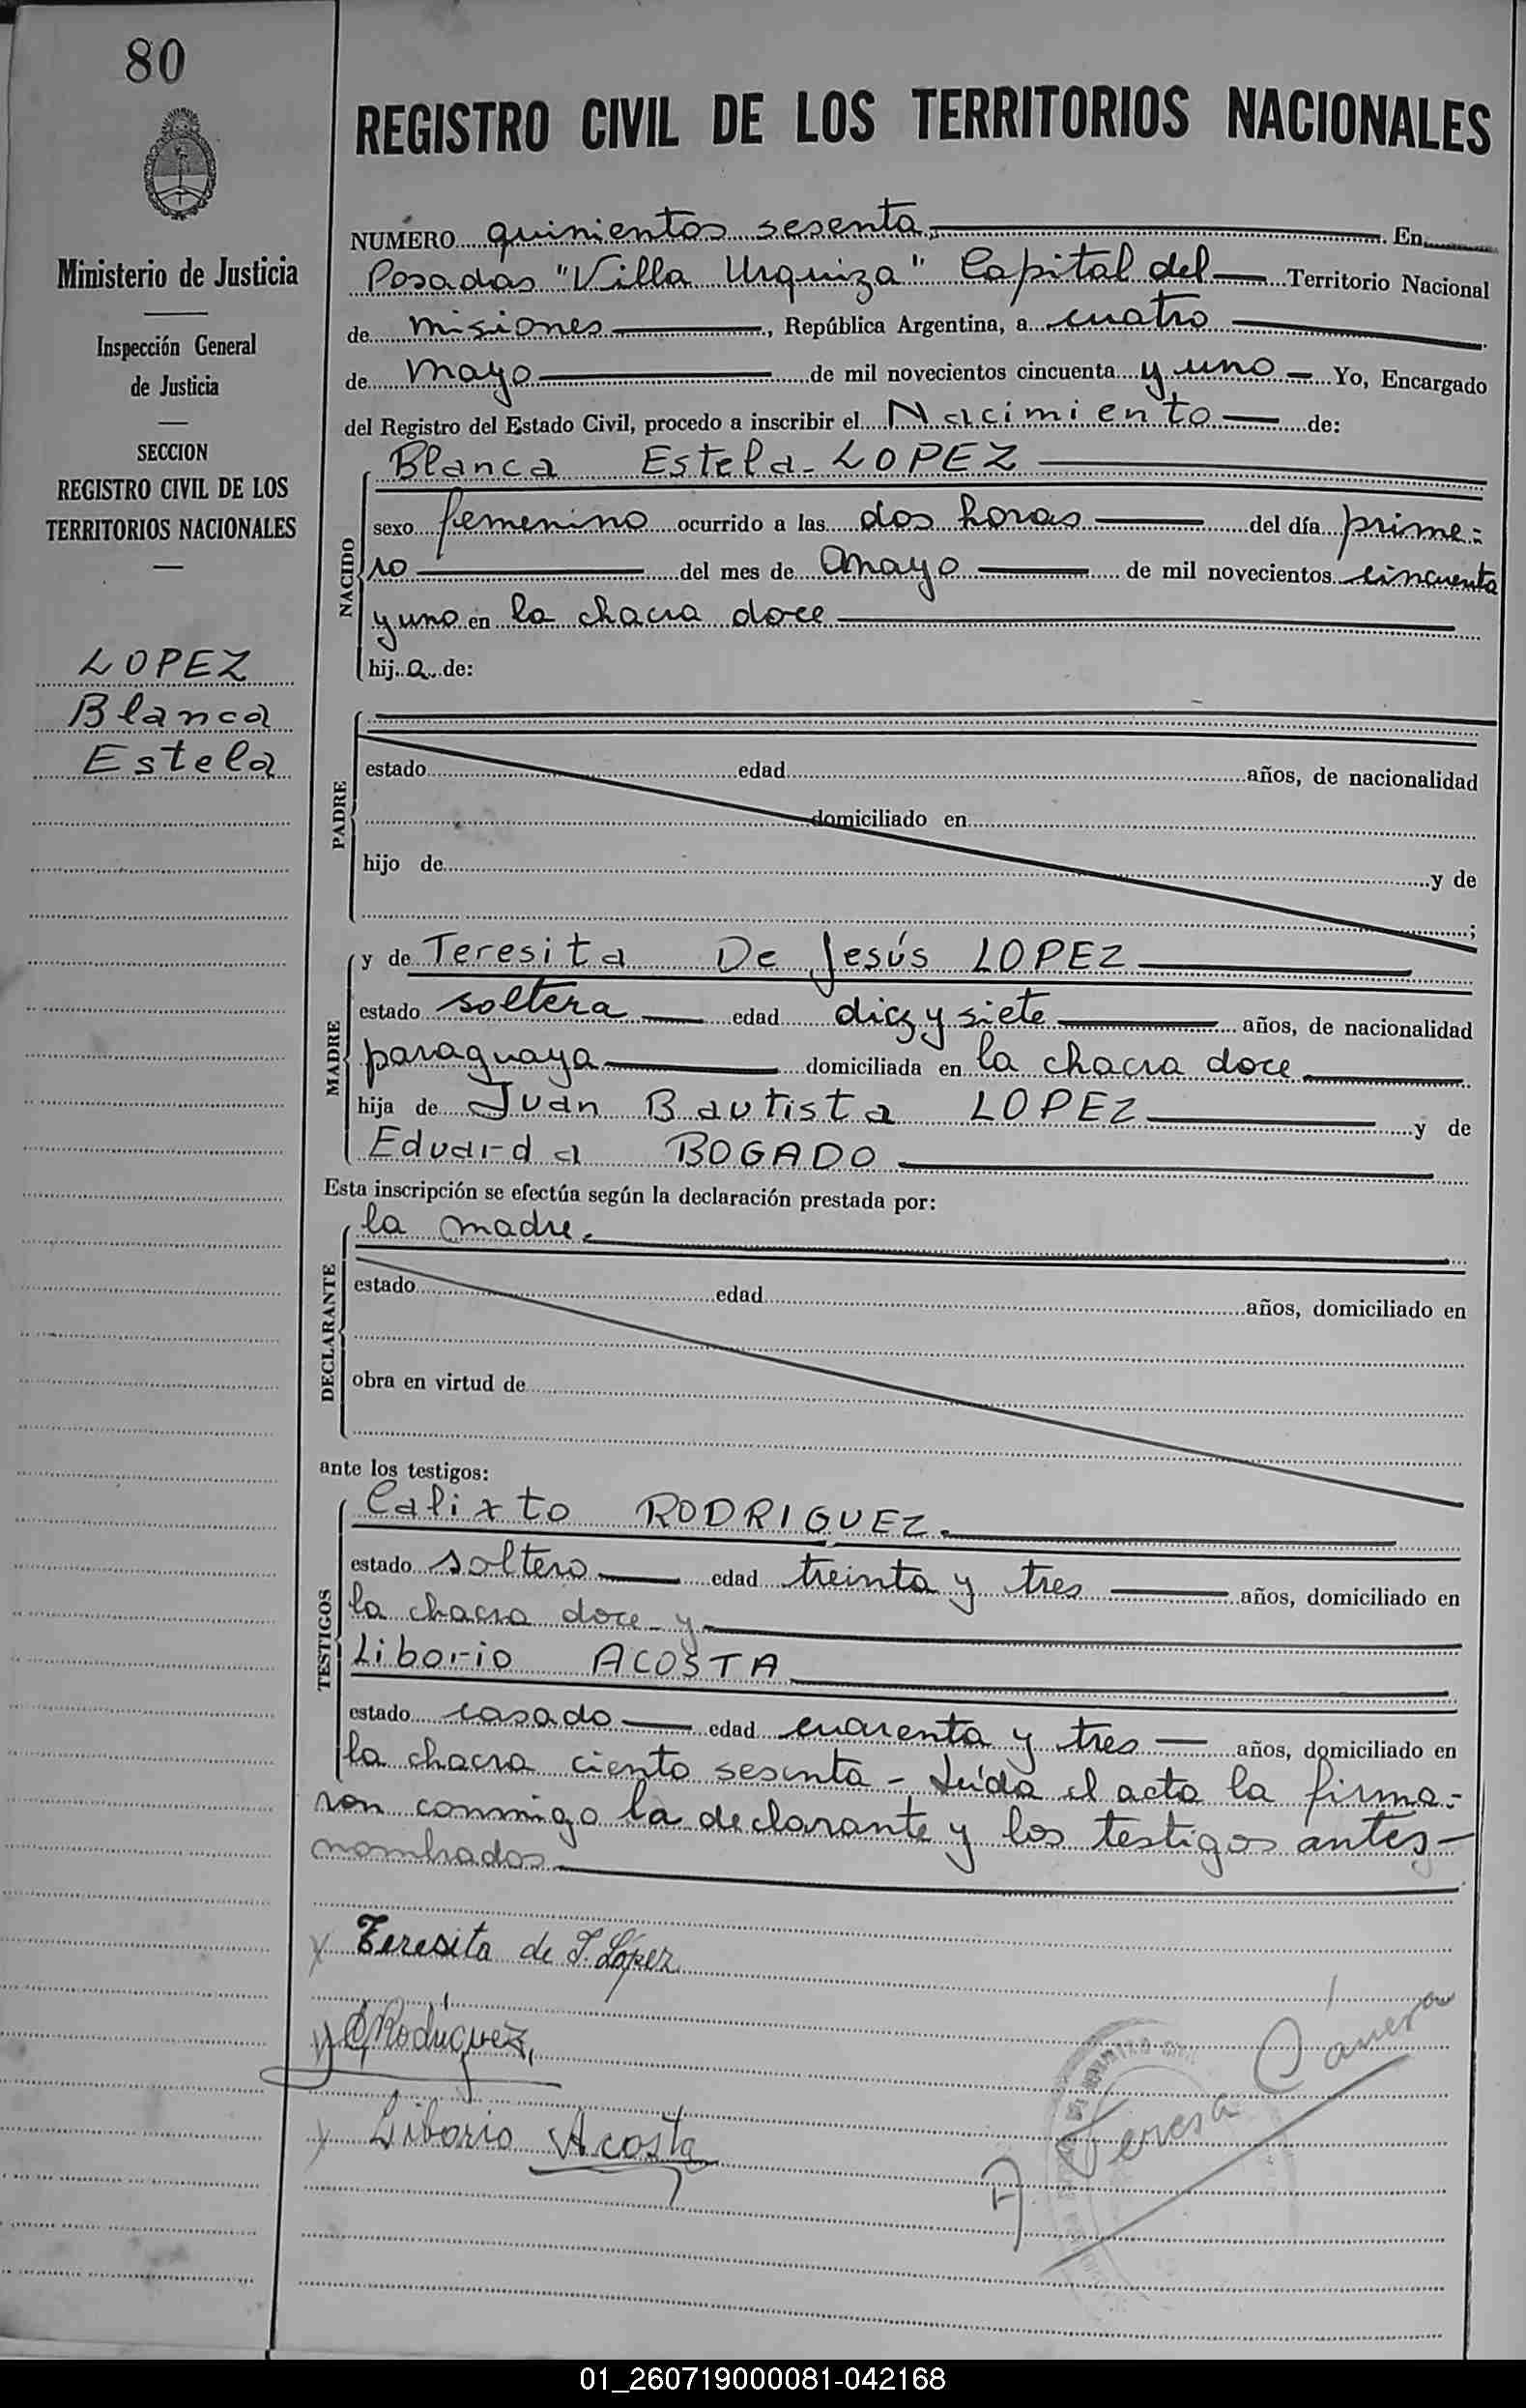 80
Ministerio de Justicia
Inspección General
de Justicia
SECCION
REGISTRO CIVIL DE LOS
TERRITORIOS NACIONALES
LOPEZ
Blanca
Estela
REGISTRO CIVIL DE LOS TERRITORIOS NACIONALES
NUMERO quinientos sesenta. En
Posadas "Villa Urquiza" Capital del Territorio Nacional
de misiones, República Argentina, a cuatro
de mayo de mil novecientos cincuenta y uno Yo, Encargado
del Registro del Estado Civil, procedo a inscribir el Nacimiento de:
NACIDO
Blanca Estela LOPEZ
sexo femenino ocurrido a las dos horas del día prime=
ro del mes de mayo de mil novecientos cincuenta
y uno en la chacra doce
hija de:
PADRE
estado edad años, de nacionalidad
domiciliado en
hijo de y de
;
MADRE
y de Teresita De Jesús LOPEZ
estado soltera edad diez y siete años, de nacionalidad
paraguaya domiciliada en la chacra doce
hija de Juan Bautista LOPEZ y de
Eduarda BOGADO
Esta inscripción se efectúa según la declaración prestada por:
DECLARANTE
la madre.
estado edad años, domiciliado en
obra en virtud de
ante los testigos:
TESTIGOS
Calixto RODRIGUEZ.
estado soltero edad treinta y tres años, domiciliado en
la chacra doce y
Liborio ACOSTA
estado casado edad cuarenta y tres años, domiciliado en
la chacra ciento sesenta - Leída el acta la firma=
ron conmigo la declarante y los testigos antes
nombrados
Teresita de J. López
C Rodriguez,
Liborio Acosta
A Teresa
01_260719000081-042168